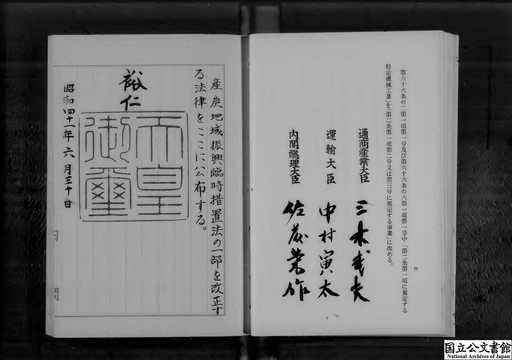 第六十六条の二第一項第一号及び第六十六条の六第一項第一号中「第二条第一項に規定する
特定機械工業」を「第二条第一項第二号又は第三号に規定する事業」に改める。
通商産業大臣 三木武夫
運輸大臣 中村寅太
内閣総理大臣 佐藤榮作
産炭地域振興臨時措置法の一部を改正す
る法律をここに公布する。
裕仁
天皇
御璽
昭和四十一年六月三十日
国立公文書館
National Archives of Japan